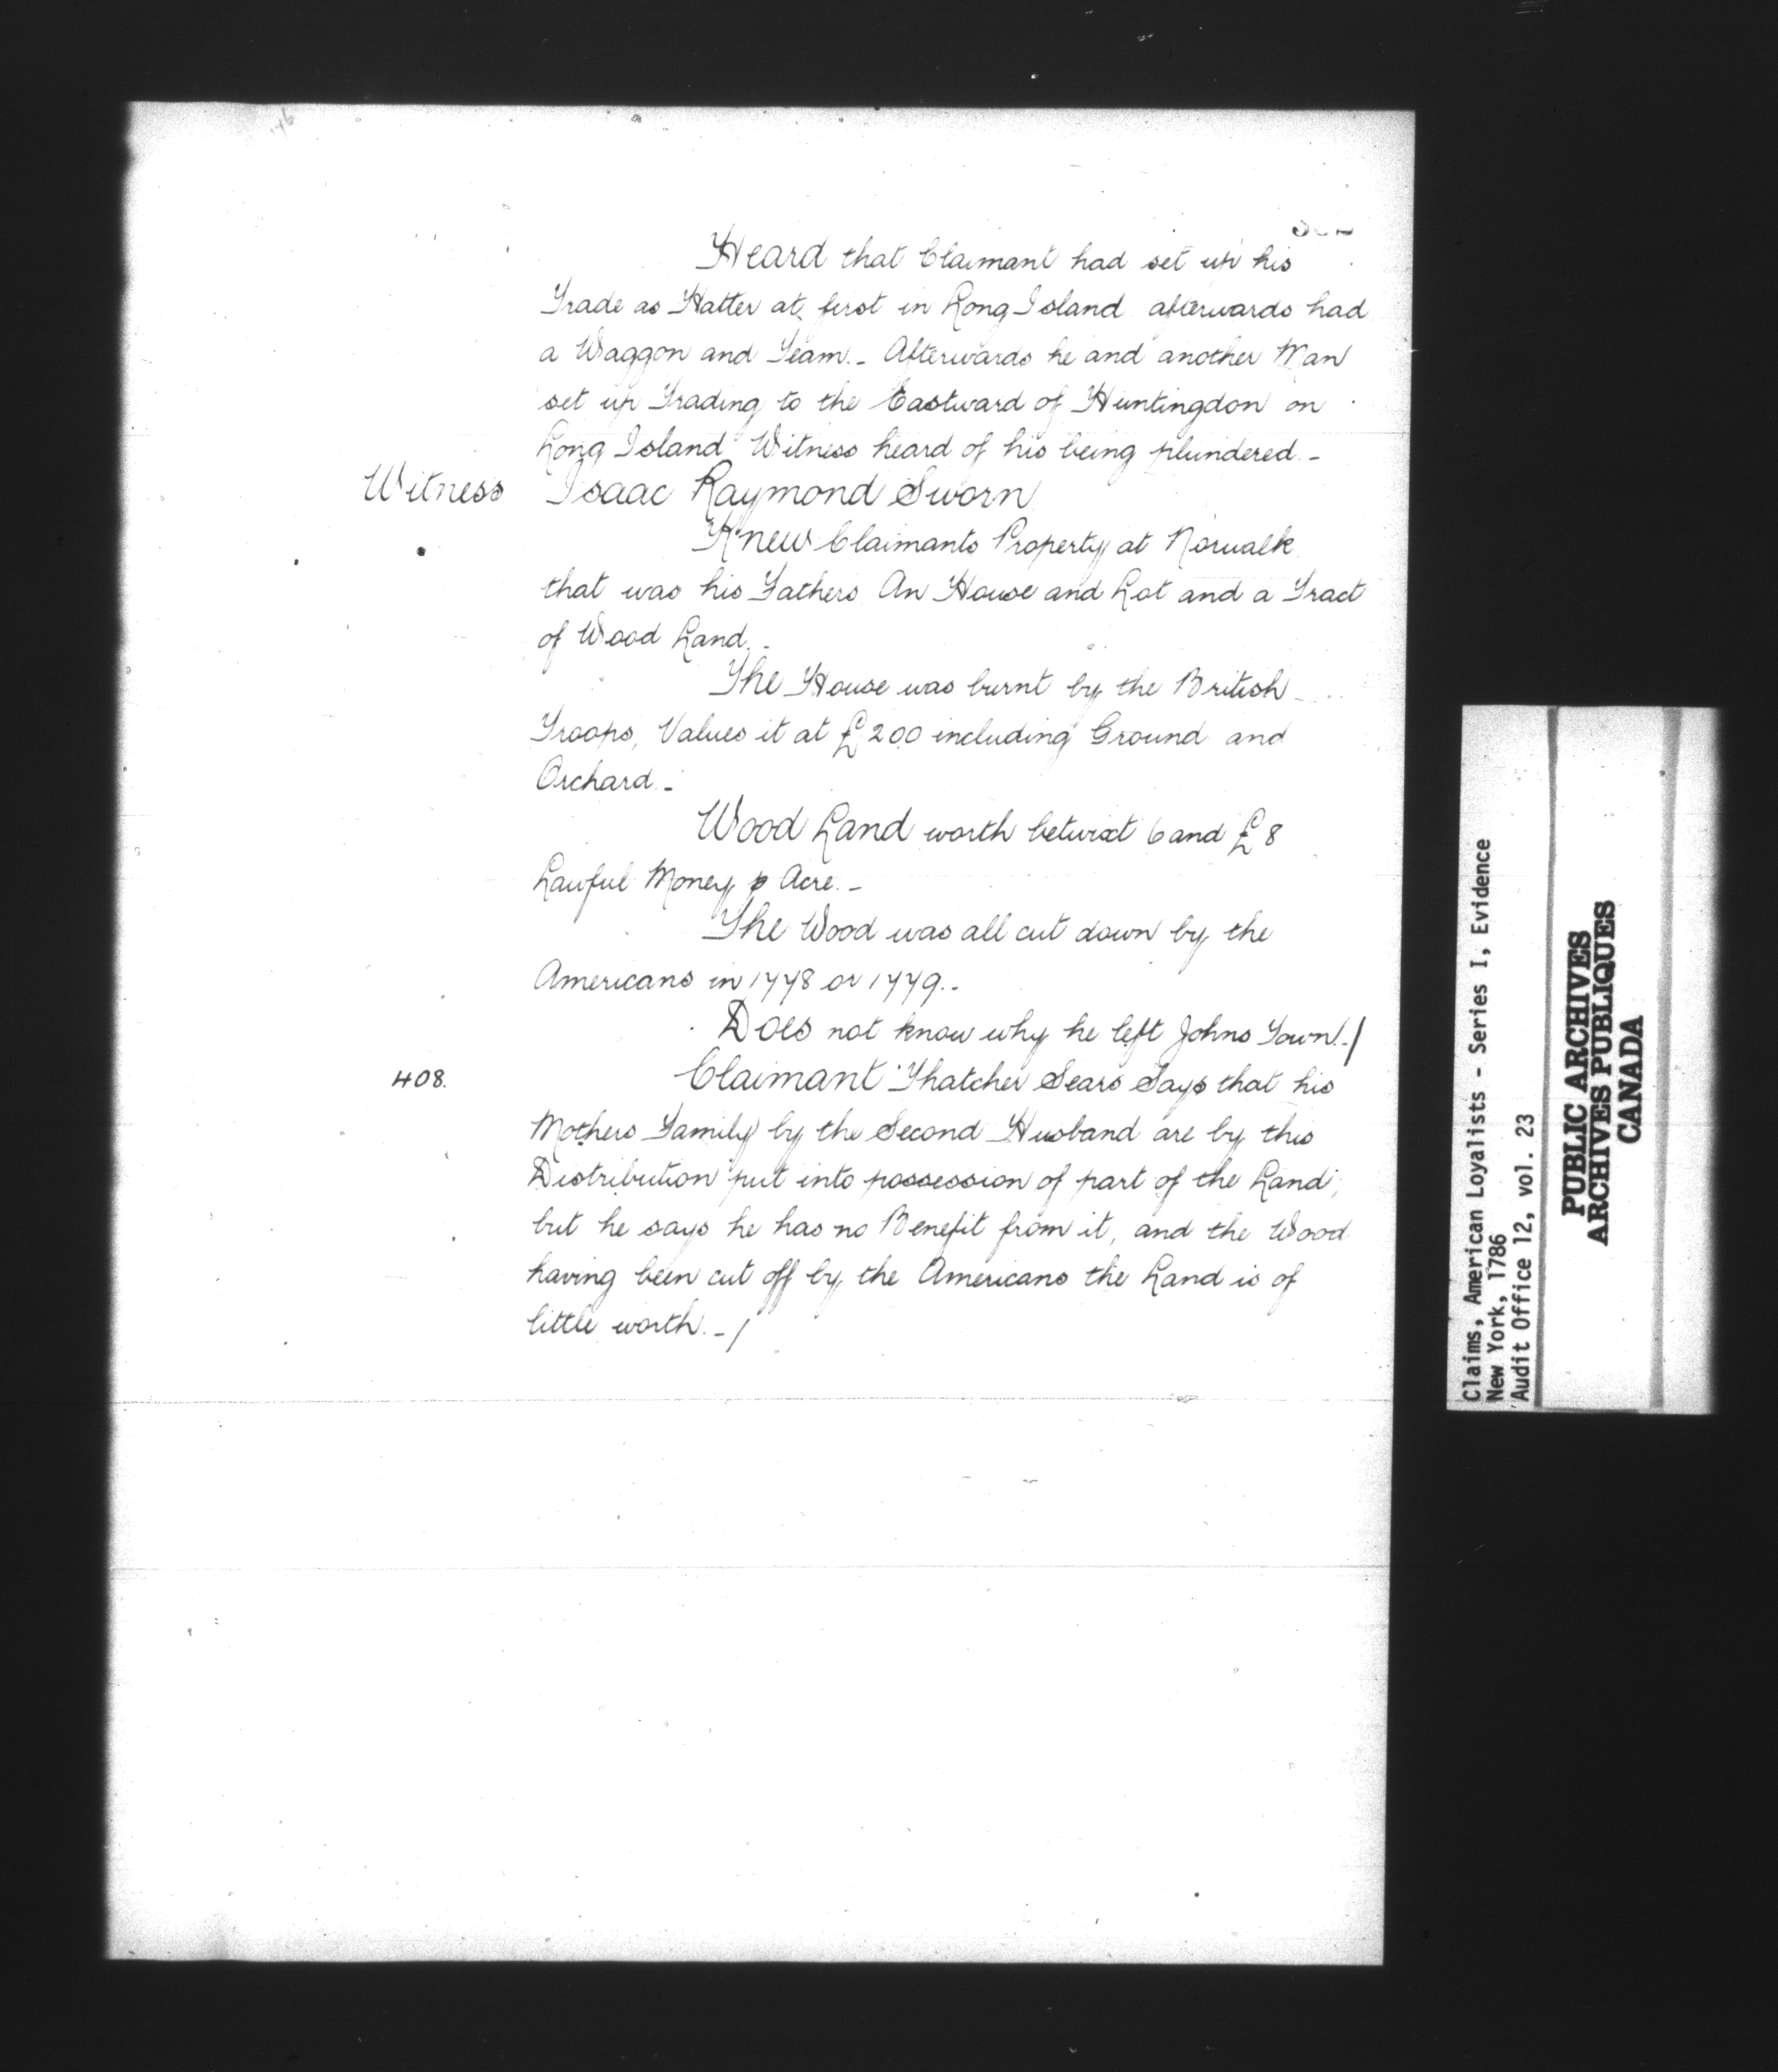 Heard that Claimant had set up his
Trade as Hatter at first in Long Island afterwards had
a Waggon and Team.- Afterwards he and another Man
set up Trading to the Eastward of Huntingdon on
Long Island Witness heard of his being plundered.-
Witness Isaac Raymond Sworn
Knew Claimants Property at Norwalk
that was his Fathers An House and Lot and a Tract
of Wood Land.-
The House was burnt by the British
Troops, Values it at £200 including Ground and
Orchard.-
Wood Land worth betwixt 6 and £8
Lawful Money p Acre.-
The Wood was all cut down by the
Americans in 1778 or 1779.-
Does not know why he left Johns Town.-/
408. Claimant Thatcher Sears Says that his
Mothers Family by the Second Husband are by this
Distribution put into possession of part of the Land,
but he says he has no Benefit from it, and the Wood
having been cut off by the Americans the Land is of
little worth.-/
Claims, American Loyalists - Series I, Evidence
New York, 1786
Audit Office 12, vol. 23
PUBLIC ARCHIVES
ARCHIVES PUBLIQUES
CANADA